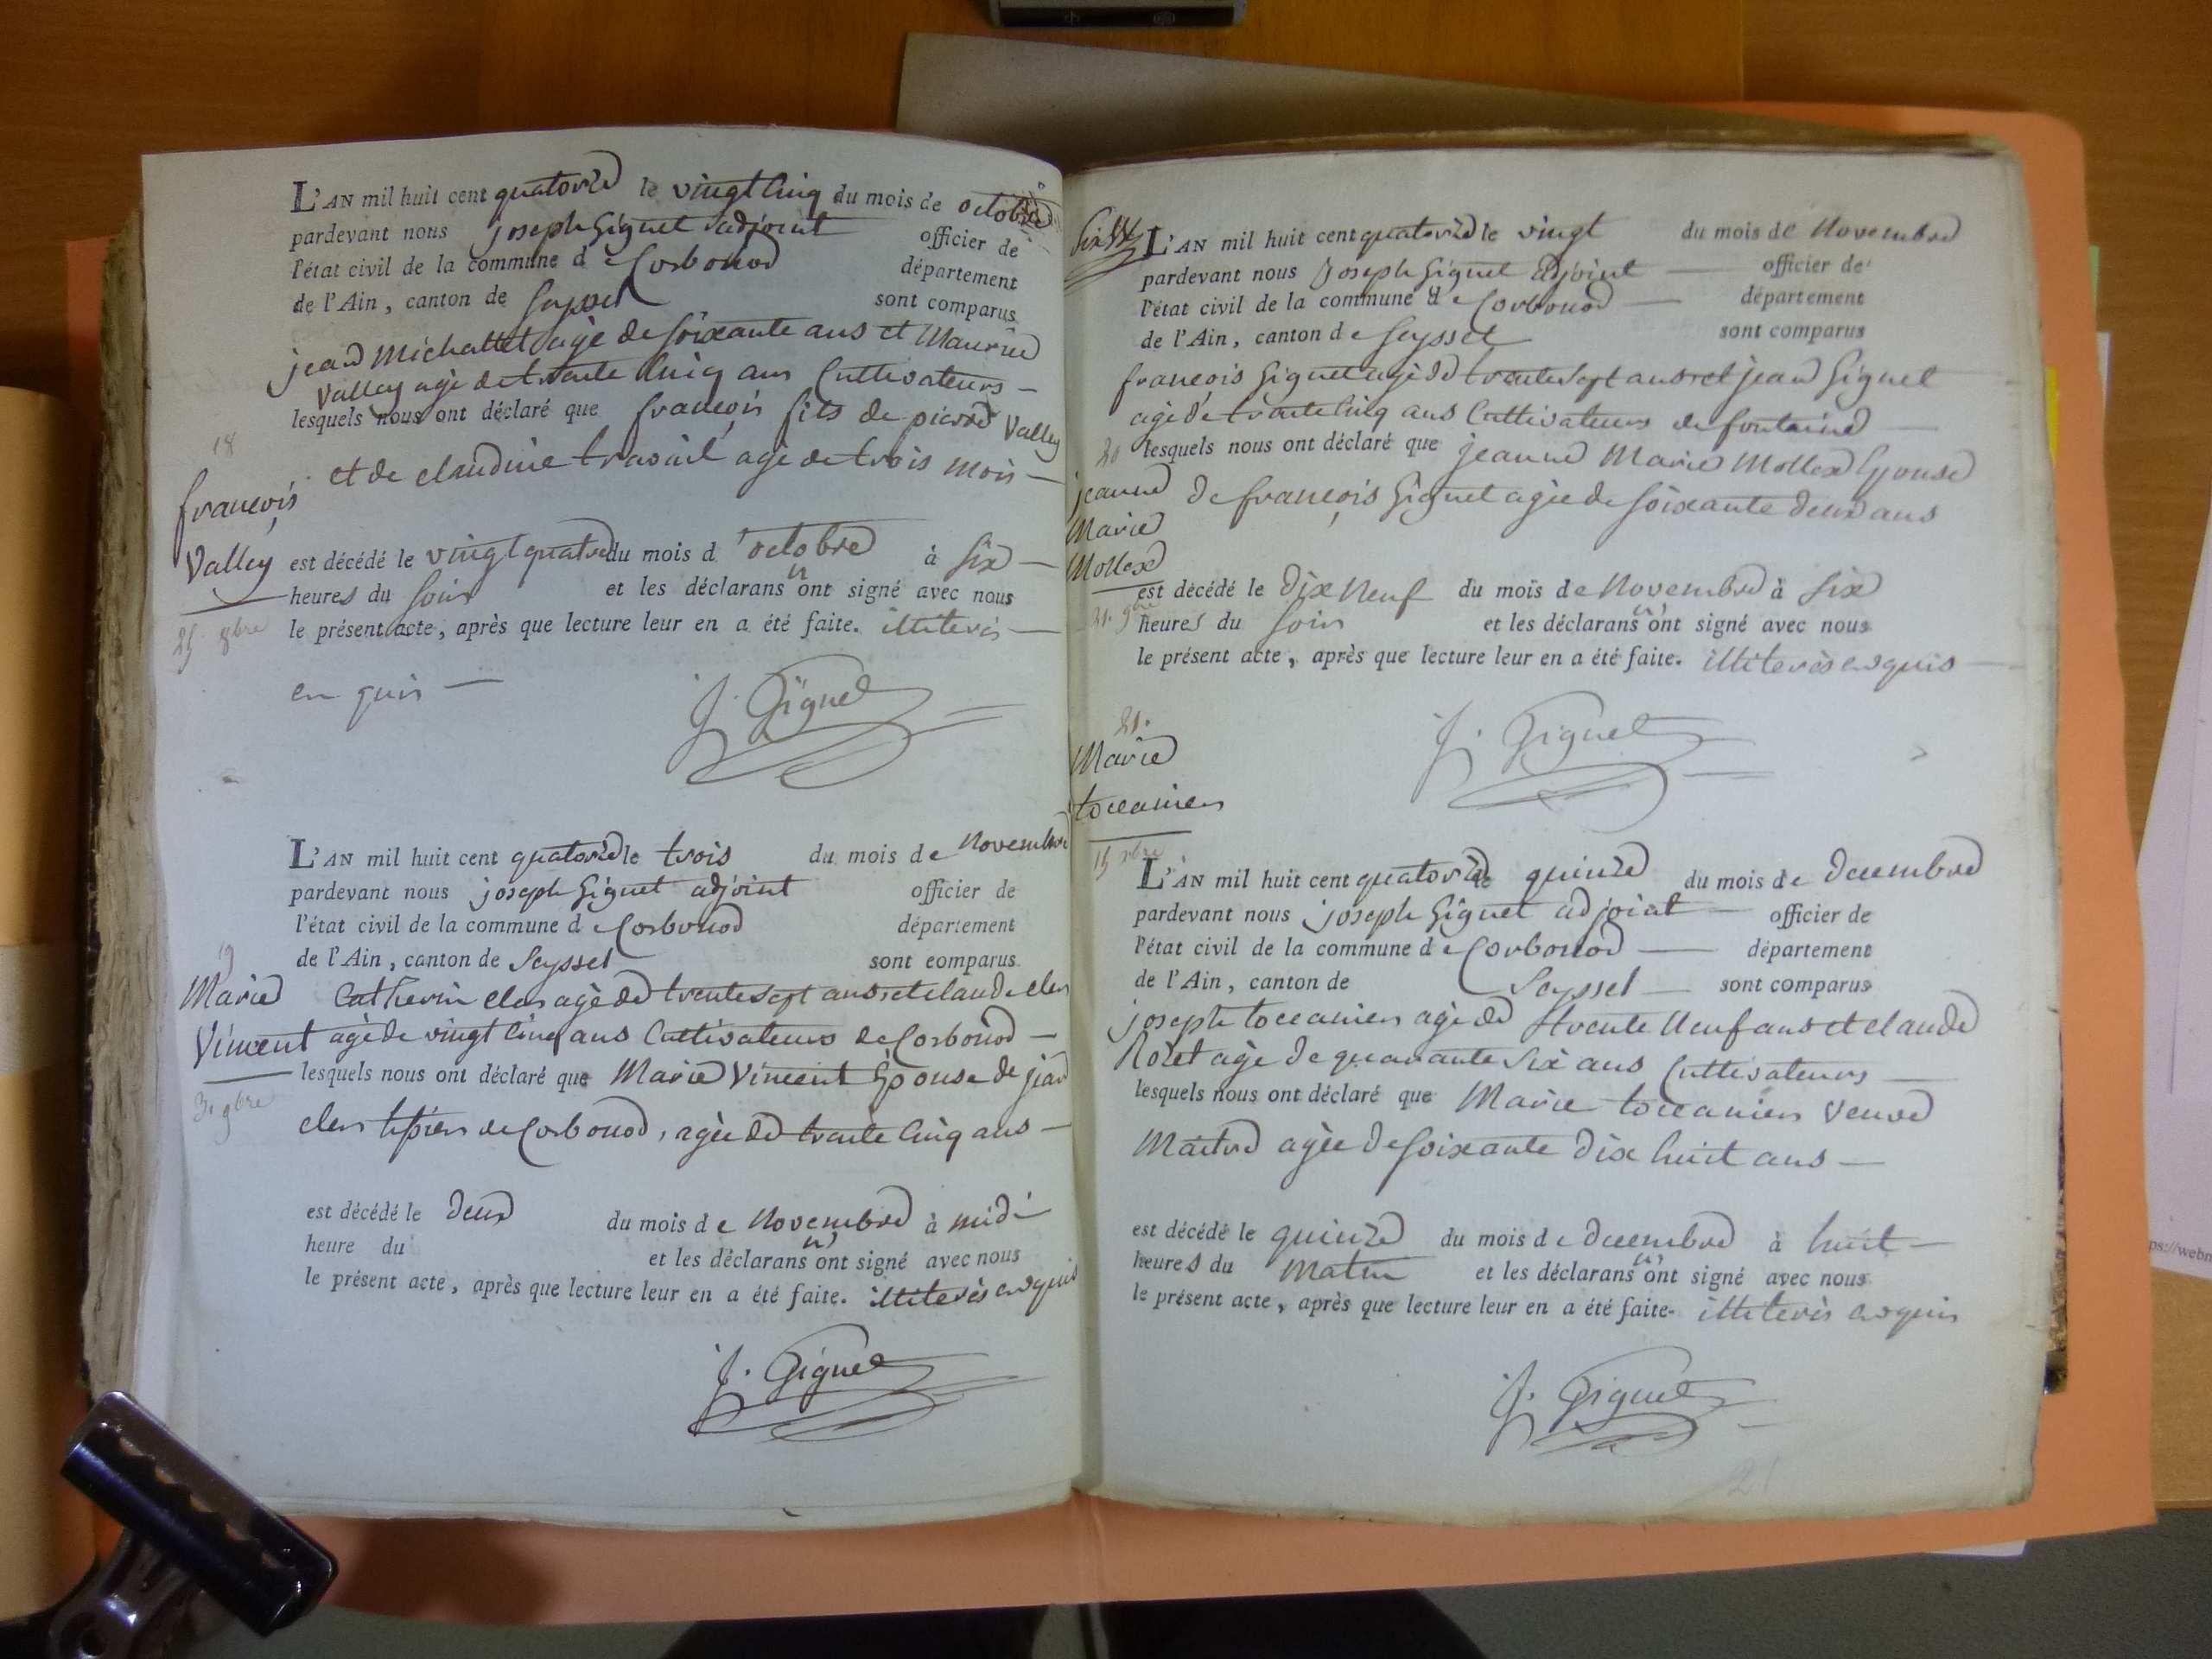 L'AN mil huit cent quatorze le vingt cinq du mois de octobre
pardevant nous joseph Giguet adjoint officier de
l'état civil de la commune de Corbonod département
de l'Ain, canton de Seyssel sont comparus
jean Michallet agé de soixante ans et Maurice
Valley agé de trente cinq ans Cultivateurs
lesquels nous ont déclaré que françois fils de pierre Valley
et de claudine travail agé de trois mois
18
françois
Valley
25 8bre
est décédé le vingt quatre du mois d'octobre à six
heures du soir et les déclarans n'ont signé avec nous
le présent acte, après que lecture leur en a été faite. illiterés
enquis
J. Giguet
L'AN mil huit cent quatorze le trois du mois de Novembre
pardevant nous joseph Giguet adjoint officier de
l'état civil de la commune de Corbonod département
de l'Ain, canton de Seyssel sont comparus
19
Marie
Vincent
3. 9bre
Catherin cler agé de trente sept ans et claude cler
agé de vingt cinq ans Cultivateurs de Corbonod
lesquels nous ont déclaré que Marie Vincent Epouse de jean
cler de Corbonod, agée de trente cinq ans
est décédé le deux du mois de Novembre à midi
heure du et les déclarans n'ont signé avec nous
le présent acte, après que lecture leur en a été faite. illiterés enquis
J. Giguet
L'AN mil huit cent quatorze le vingt du mois de Novembre
pardevant nous Joseph Giguet adjoint officier de
l'état civil de la commune de Corbonod département
de l'Ain, canton de Seyssel sont comparus
françois Giguet agé de trente sept ans et jean Giguet
agé de trente cinq ans Cultivateurs de fontaine
lesquels nous ont déclaré que jeanne Marie Mollex Epouse
de françois Giguet agée de soixante deux ans
20
jeanne
Marie
Mollex
21. 9bre
est décédé le dix Neuf du mois de Novembre à six
heures du soir et les déclarans n'ont signé avec nous
le présent acte, après que lecture leur en a été faite. illiterés enquis
J. Giguet
21.
Marie
toccanier
15 xbre
L'AN mil huit cent quatorze le quinze du mois de decembre
pardevant nous joseph Giguet adjoint officier de
l'état civil de la commune de Corbonod département
de l'Ain, canton de Seyssel sont comparus
joseph toccanier agé de trente Neuf ans et claude
agé de quarante six ans Cultivateurs
lesquels nous ont déclaré que Marie toccanier Veuve
agée de soixante dix huit ans
est décédé le quinze du mois de decembre à huit
heures du matin et les déclarans n'ont signé avec nous
le présent acte, après que lecture leur en a été faite. illiterés enquis
J. Giguet
21